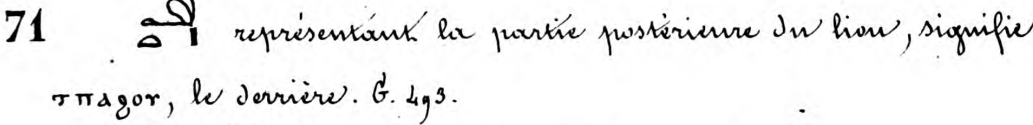 71 𓄖 représentant la partie postérieure du lion, signifie
ⲧⲡⲁϩⲟⲩ, le derrière. G. 493.